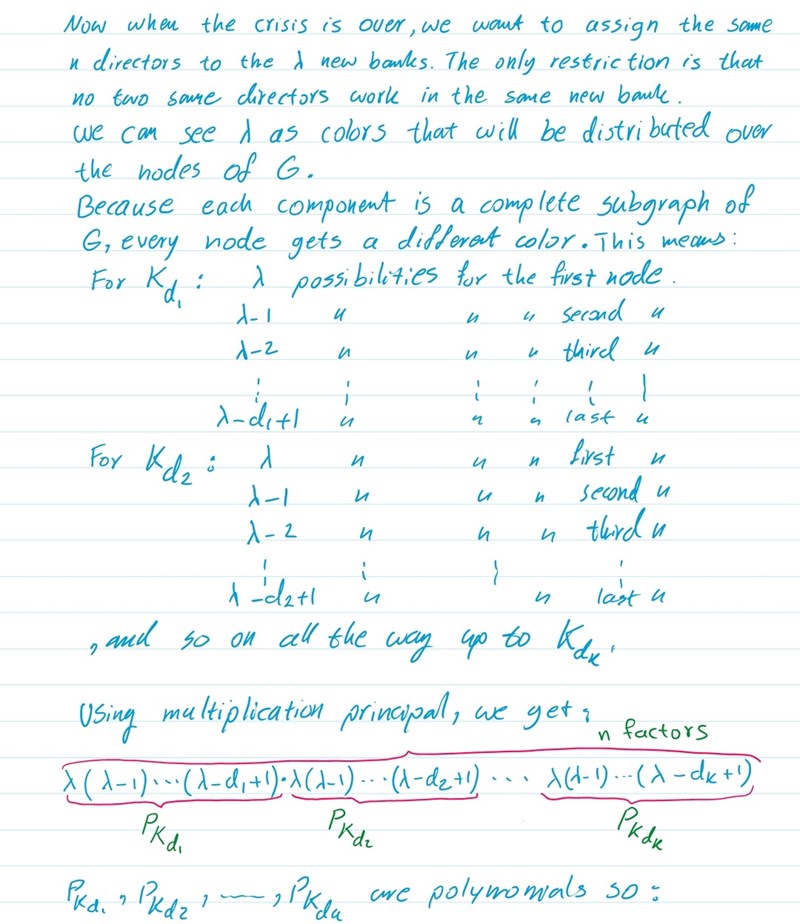 Now when the crisis is over, we want to assign the same
n directors to the λ new banks. The only restriction is that
no two same directors work in the same new bank.
we can see λ as colors that will be distributed over
the nodes of G.
Because each component is a complete subgraph of
G, every node gets a different color. This means:
For K_d₁ : λ possibilities for the first node.
λ-1 " " " second "
λ-2 " " " third "
⋮ ⋮ ⋮ ⋮ ⋮ ⋮
λ-d₁+1 " " " last "
For K_d₂ : λ " " " first "
λ-1 " " " second "
λ-2 " " " third "
⋮ ⋮ ⋮ ⋮
λ-d₂+1 " " last "
, and so on all the way up to K_dₖ.
Using multiplication principal, we get:
n factors
λ(λ-1)···(λ-d₁+1)·λ(λ-1)···(λ-d₂+1) ··· λ(λ-1)···(λ-dₖ+1)
P_K_d₁ P_K_d₂ P_K_dₖ
P_K_d₁, P_K_d₂, —, P_K_dₖ are polynomials so :